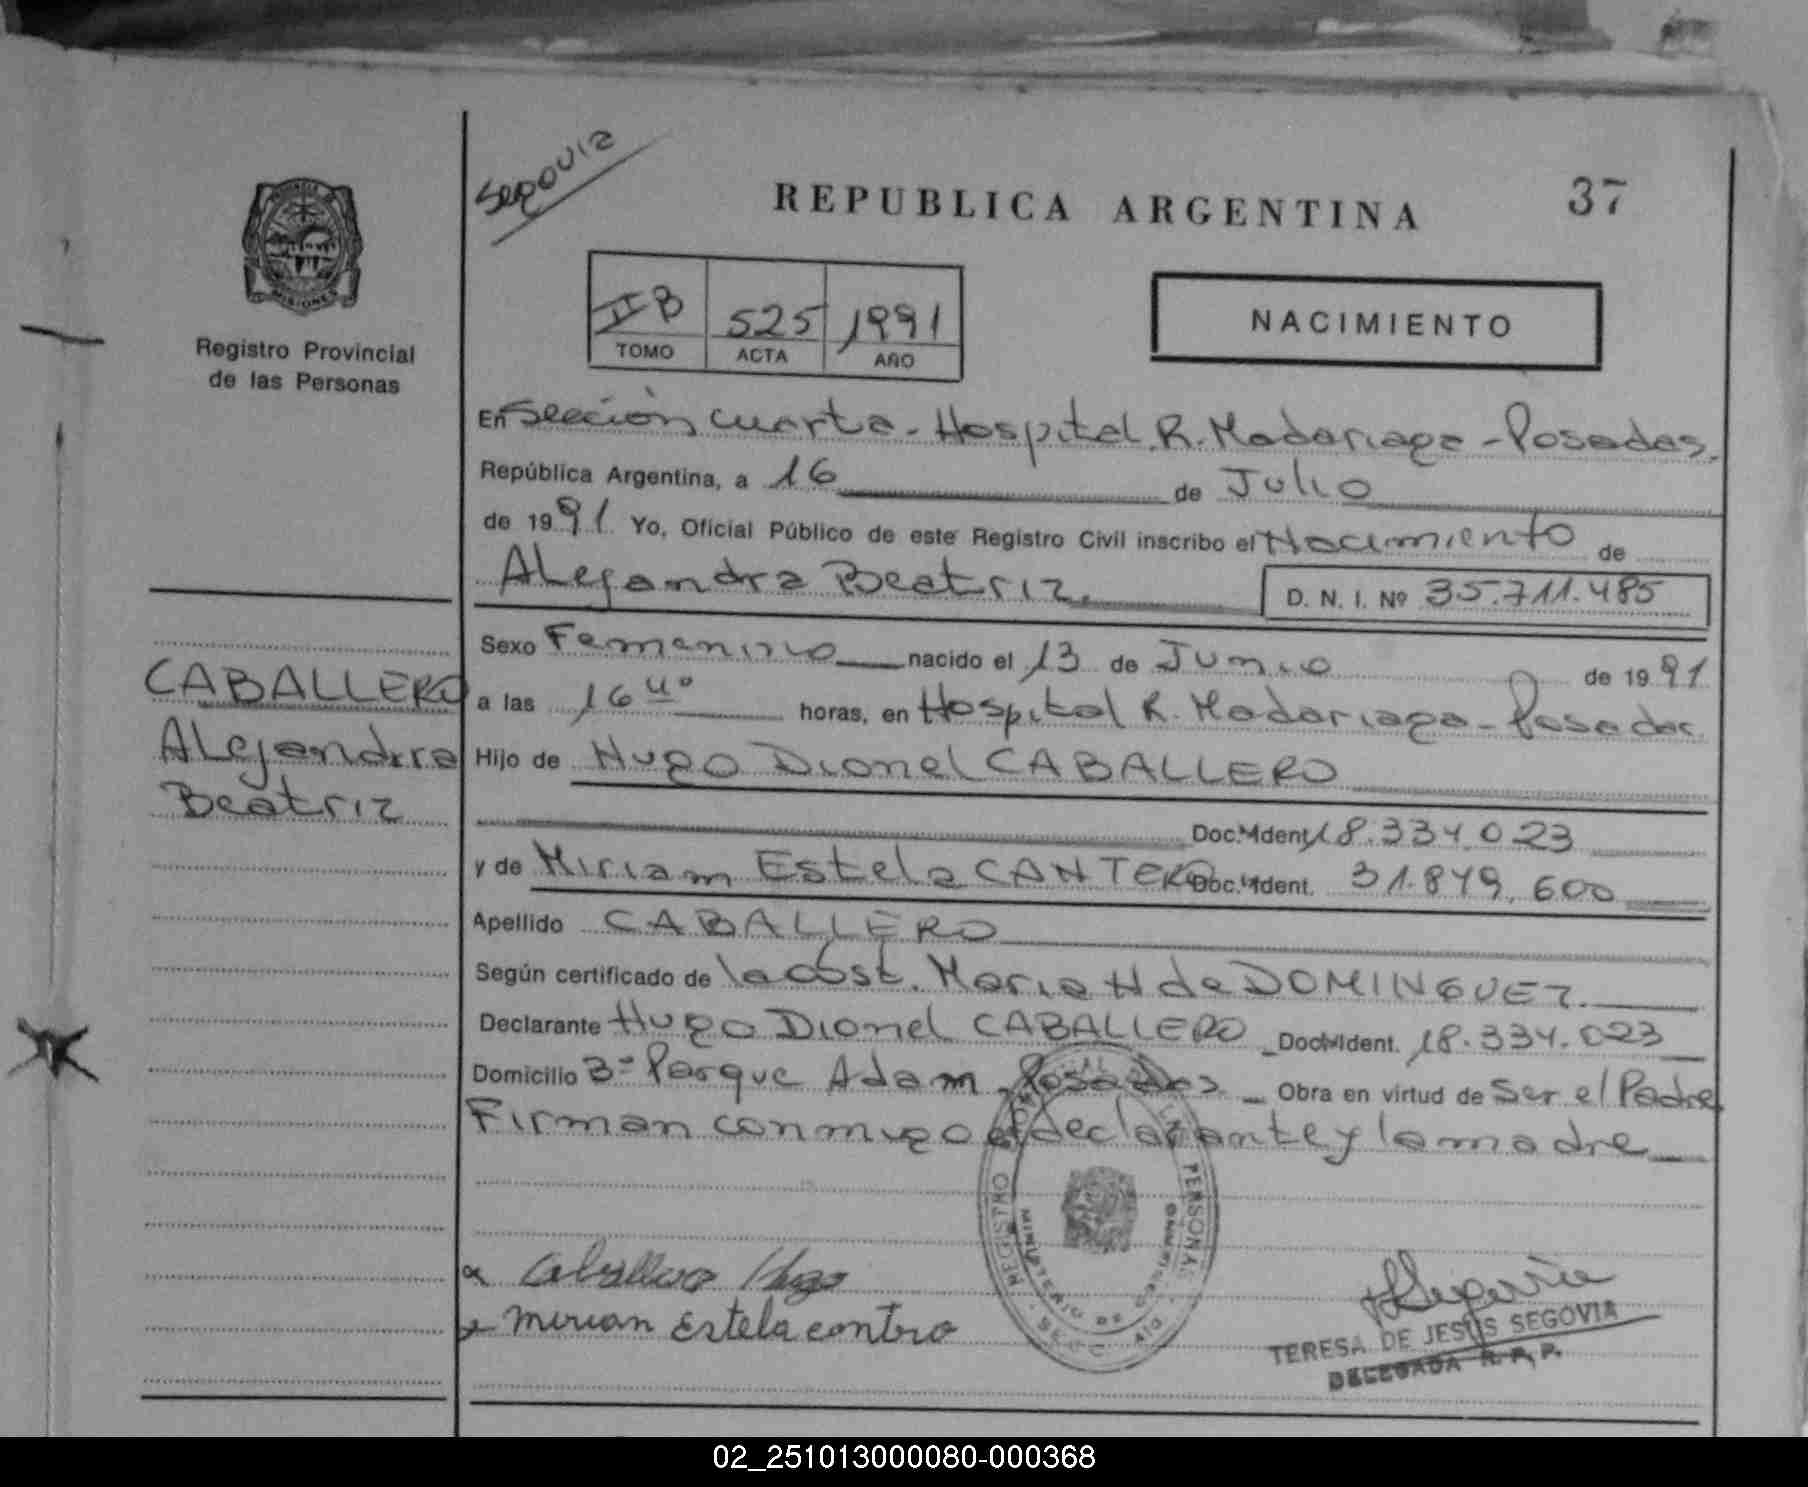 Segovia
REPUBLICA ARGENTINA
37
MISIONES
Registro Provincial
de las Personas
II B 525 1991
TOMO ACTA AÑO
NACIMIENTO
En Sección cuarta - Hospital R. Madariaga - Posadas.
República Argentina, a 16 de Julio
de 1991 Yo, Oficial Público de este Registro Civil inscribo el Nacimiento de
Alejandra Beatriz. D. N. I. Nº 35.711.485
Sexo Femenino nacido el 13 de Junio de 1991
CABALLERO
Alejandra
Beatriz
a las 16 40 horas, en Hospital R. Madariaga - Posadas.
Hijo de Hugo Dionel CABALLERO
Doc. Ident. 18.334.023
y de Miriam Estela CANTERO Doc. Ident. 31.849.600
Apellido CABALLERO
Según certificado de la obst. Maria H de DOMINGUEZ.
Declarante Hugo Dionel CABALLERO Doc. Ident. 18.334.023
Domicilio Bº Parque Adam - Posadas Obra en virtud de Ser el Padre
Firman conmigo el declarante y la madre
REGISTRO PERSONAS
MINISTERIO DE GOBIERNO
Caballero Hugo
Mirian Estela contero
TERESA DE JESUS SEGOVIA
DELEGADA R. P. P.
02_251013000080-000368